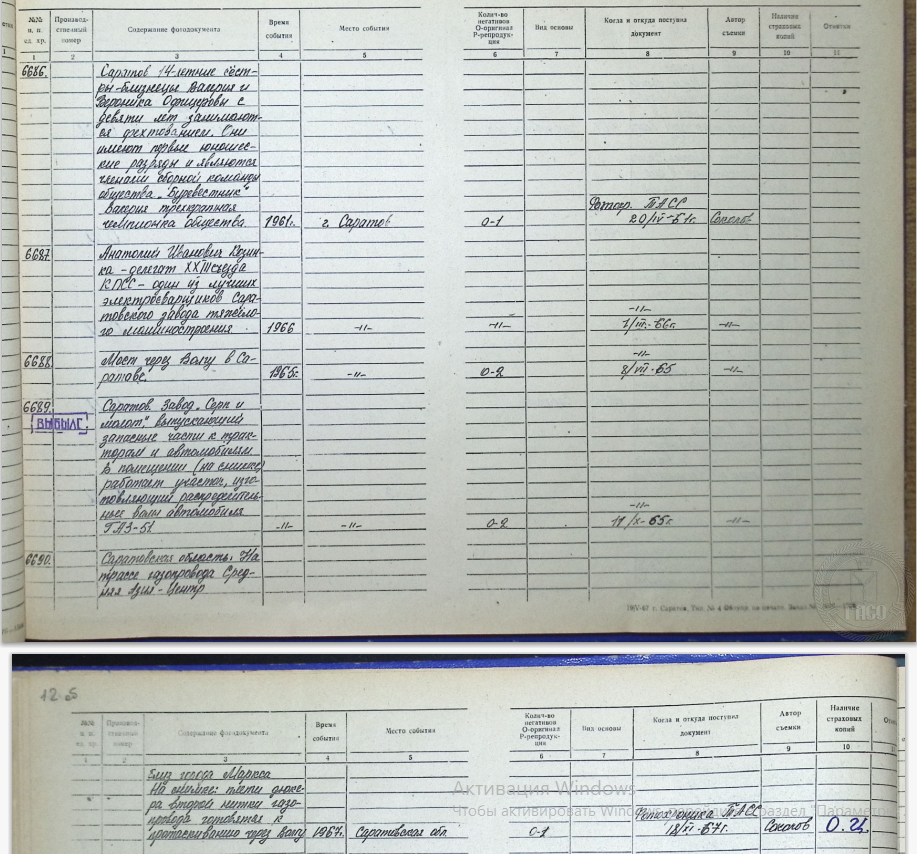 №№ п. п. ед. хр.
Производственный номер
Содержание фотодокумента
Время события
Место события
Колич-во негативов О-оригинал Р-репродукция
Вид основы
Когда и откуда поступил документ
Автор съемки
Наличие страховых копий
Отметки
1 2 3 4 5 6 7 8 9 10 11
6686. Саратов 14-летние сест-
ры-близнецы Валерия и
Вероника Офицеровы с
девяти лет занимают-
ся фехтованием. Они
имеют первые юношес-
кие разряды и являются
членами сборной команды
общества „Буревестник"
Валерия трехкратная Фотохр. ТАСС
чемпионка общества. 1961г. г. Саратов 0-1 20/IV-61г. Соколов
6687. Анатолий Иванович
ка - делегат XXIII съезда
КПСС - один из лучших
электросварщиков Сара-
товского завода тяжело- -„-
го машиностроения. 1966 -„- -„- 1/III-66г. -„-
6688. Мост через Волгу в Са- -„-
ратове. 1965г. -„- 0-2 8/VII-65 -„-
6689. Саратов. Завод „Серп и
ВЫБЫЛО
молот", выпускающий
запасные части к трак-
торам и автомобилям
В помещении (на снимке)
работает участок, изго-
товляющий распределитель-
ные валы автомобиля -„-
ГАЗ-51 -„- -„- 0-2 /X-65г. -„-
6690. Саратовская область. На
трассе газопровода Сред-
няя Азия - Центр
г. Саратов, Тип. № 4
ГАСО
12
№№ п. п. ед. хр.
Производственный номер
Содержание фотодокумента
Время события
Место события
Колич-во негативов О-оригинал Р-репродукция
Вид основы
Когда и откуда поступил документ
Автор съемки
Наличие страховых копий
1 2 3 4 5 6 7 8 9 10
близ города Маркса
На снимке: плети дюке-
ра второй нитки газо-
провода готовятся к Фотохроника ТАСС
протаскиванию через Волгу 1967г. Саратовская обл. 0-1 18/VI-67г. Соколов О.Ц.
Активация Windows
Чтобы активировать Windows, перейдите в раздел "Параметры